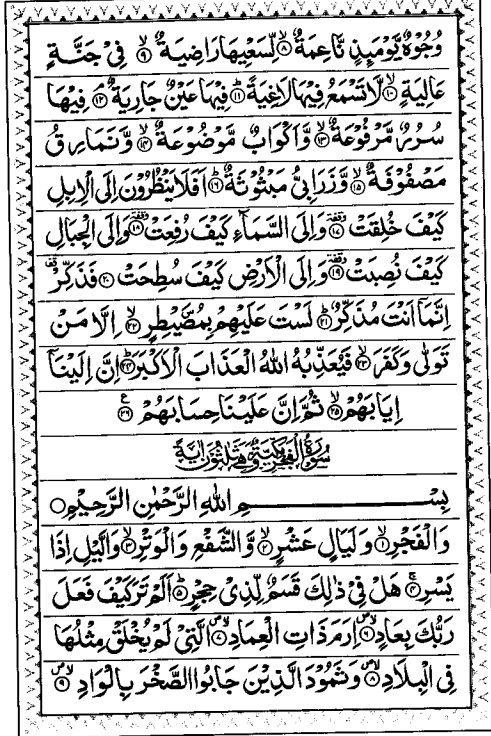 وُجُوۡهٌ يَّوۡمَٮِٕذٍ نَّاعِمَةٌ ۙ‏﴿۸﴾ لِّسَعۡيِهَا رَاضِيَةٌ ۙ‏﴿۹﴾ فِىۡ جَنَّةٍ
عَالِيَةٍ ۙ‏﴿۱۰﴾ لَّا تَسۡمَعُ فِيۡهَا لَاغِيَةً ؕ‏﴿۱۱﴾ فِيۡهَا عَيۡنٌ جَارِيَةٌ ۘ‏﴿۱۲﴾ فِيۡهَا
سُرُرٌ مَّرۡفُوۡعَةٌ ۙ‏﴿۱۳﴾ وَّاَكۡوَابٌ مَّوۡضُوۡعَةٌ ۙ‏﴿۱۴﴾ وَّنَمَارِقُ
مَصۡفُوۡفَةٌ ۙ‏﴿۱۵﴾ وَّزَرَابِىُّ مَبۡثُوۡثَةٌ ؕ‏﴿۱۶﴾ اَفَلَا يَنۡظُرُوۡنَ اِلَى الۡاِبِلِ
كَيۡفَ خُلِقَتۡ ۥ‏﴿۱۷﴾ وَاِلَى السَّمَآءِ كَيۡفَ رُفِعَتۡ ۥ‏﴿۱۸﴾ وَاِلَى الۡجِبَالِ
كَيۡفَ نُصِبَتۡ ۥ‏﴿۱۹﴾ وَاِلَى الۡاَرۡضِ كَيۡفَ سُطِحَتۡ‏﴿۲۰﴾ فَذَكِّرۡ
اِنَّمَاۤ اَنۡتَ مُذَكِّرٌ ؕ‏﴿۲۱﴾ لَسۡتَ عَلَيۡهِمۡ بِمُصَۜيۡطِرٍ ۙ‏﴿۲۲﴾ اِلَّا مَنۡ
تَوَلّٰى وَكَفَرَ ۙ‏﴿۲۳﴾ فَيُعَذِّبُهُ اللّٰهُ الۡعَذَابَ الۡاَكۡبَرَ ؕ‏﴿۲۴﴾ اِنَّ اِلَيۡنَاۤ
اِيَابَهُمۡ ۙ‏﴿۲۵﴾ ثُمَّ اِنَّ عَلَيۡنَا حِسَابَهُمۡ‏﴿۲۶﴾
سُوۡرَةُ الۡفَجۡرِ مَكِّيَّةٌ وَّهِىَ ثَلٰثُوۡنَ اٰيَةً
بِسۡمِ اللّٰهِ الرَّحۡمٰنِ الرَّحِيۡمِ
وَالۡفَجۡرِ ۙ‏﴿۱﴾ وَلَيَالٍ عَشۡرٍ ۙ‏﴿۲﴾ وَّالشَّفۡعِ وَالۡوَتۡرِ ۙ‏﴿۳﴾ وَالَّيۡلِ اِذَا
يَسۡرِ ۚ‏﴿۴﴾ هَلۡ فِىۡ ذٰلِكَ قَسَمٌ لِّذِىۡ حِجۡرٍ ؕ‏﴿۵﴾ اَلَمۡ تَرَ كَيۡفَ فَعَلَ
رَبُّكَ بِعَادٍ ۙ‏﴿۶﴾ اِرَمَ ذَاتِ الۡعِمَادِ ۙ‏﴿۷﴾ الَّتِىۡ لَمۡ يُخۡلَقۡ مِثۡلُهَا
فِى الۡبِلَادِ ۙ‏﴿۸﴾ وَثَمُوۡدَ الَّذِيۡنَ جَابُوا الصَّخۡرَ بِالۡوَادِ ۙ‏﴿۹﴾